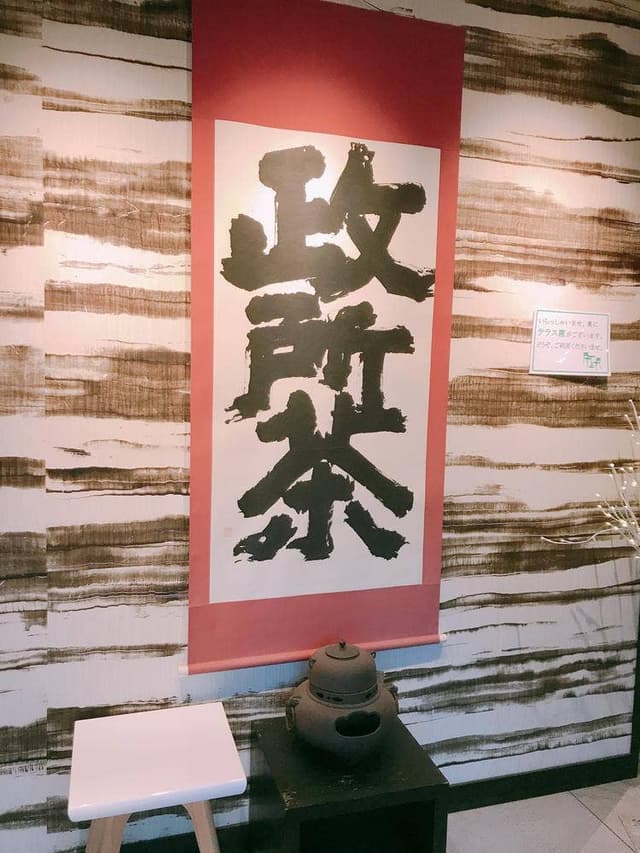 政
所
茶
いらっしゃいませ。奥に
テラス席がございます。
どうぞ、ご利用くださいませ。